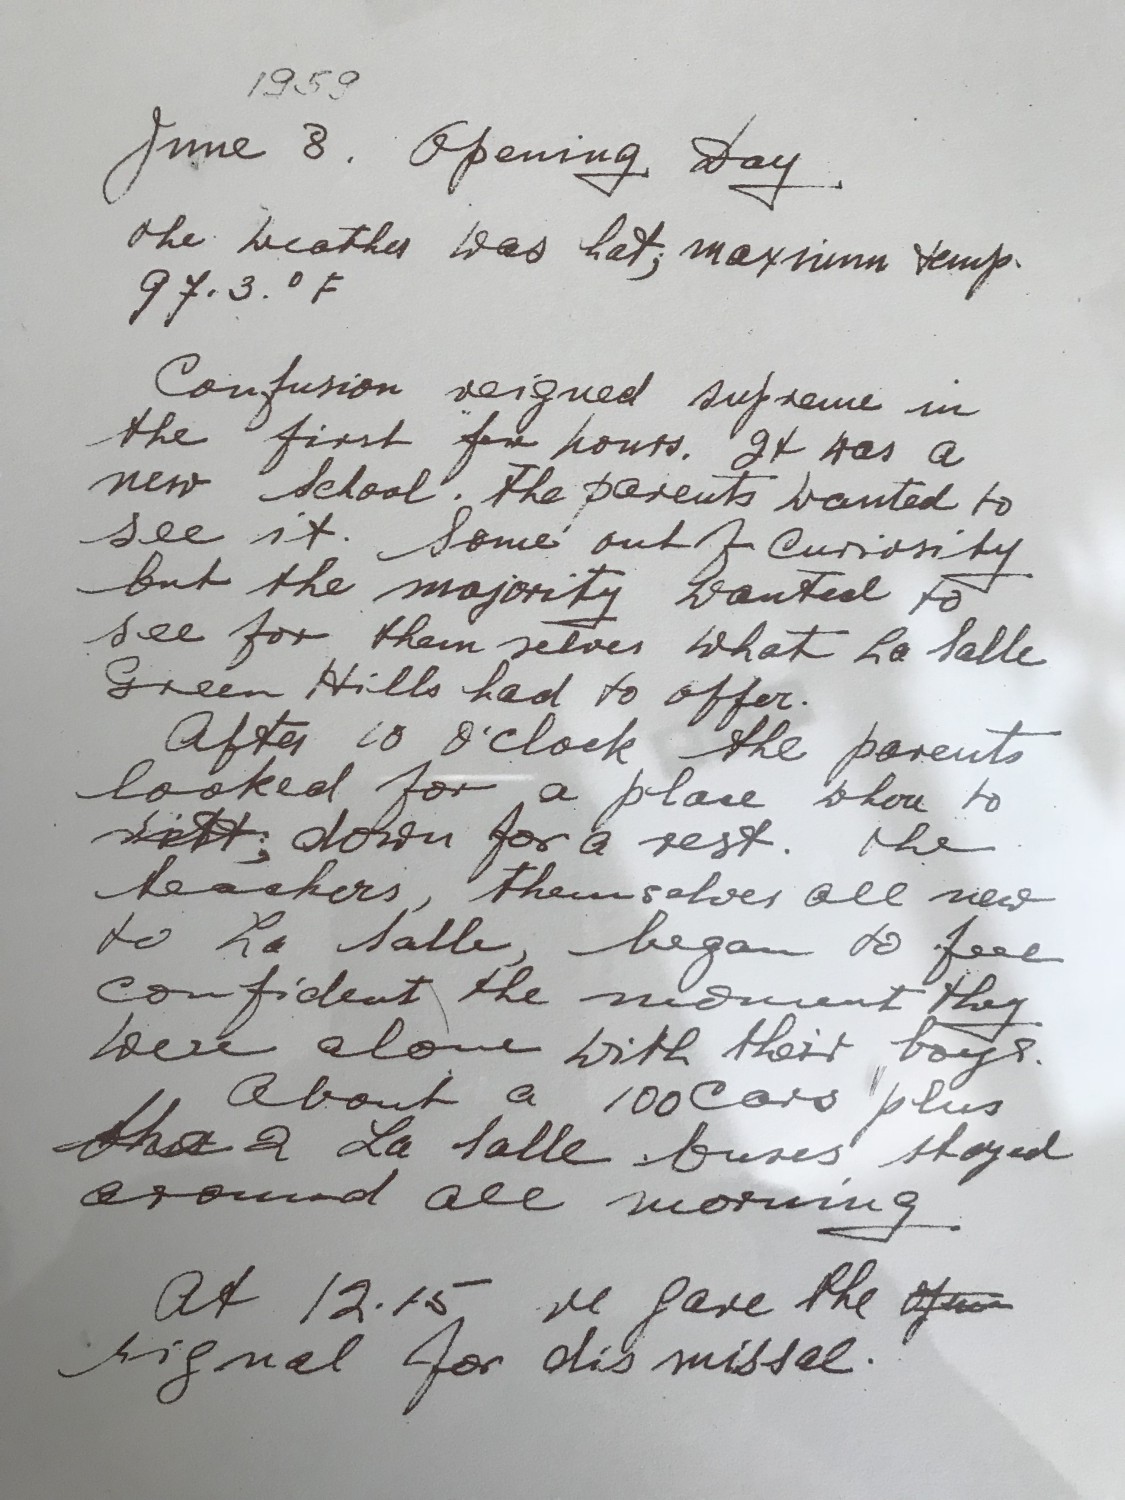 1959
June 8. Opening Day
The weather was hot; maximum temp.
97.3.° F
Confusion reigned supreme in
the first few hours. It was a
new school. The parents wanted to
see it. Some out of curiosity
but the majority wanted to
see for themselves what La Salle
Green Hills had to offer.
After 10 o'clock the parents
looked for a place where to
down for a rest. The
teachers, themselves all new
to La Salle, began to feel
confident the moment they
were alone with their boys.
About a 100 Cars plus
the 2 La Salle buses stayed
around all morning
At 12.15 we gave the
signal for dismissal.